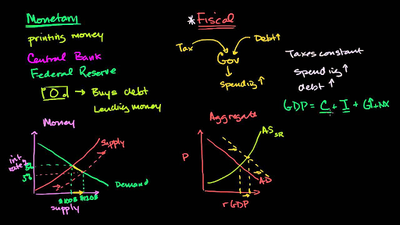 Monetary
printing money
Central Bank
Federal Reserve
→ Buys debt
Lending money
*Fiscal
Tax
Debt↑
Gov
spending↑
Taxes constant
spending↑
debt↑
GDP = C + I + G↑ + NX
Money
Supply
int
rate
Demand
supply
Aggregate
AS SR
P
AD
rGDP